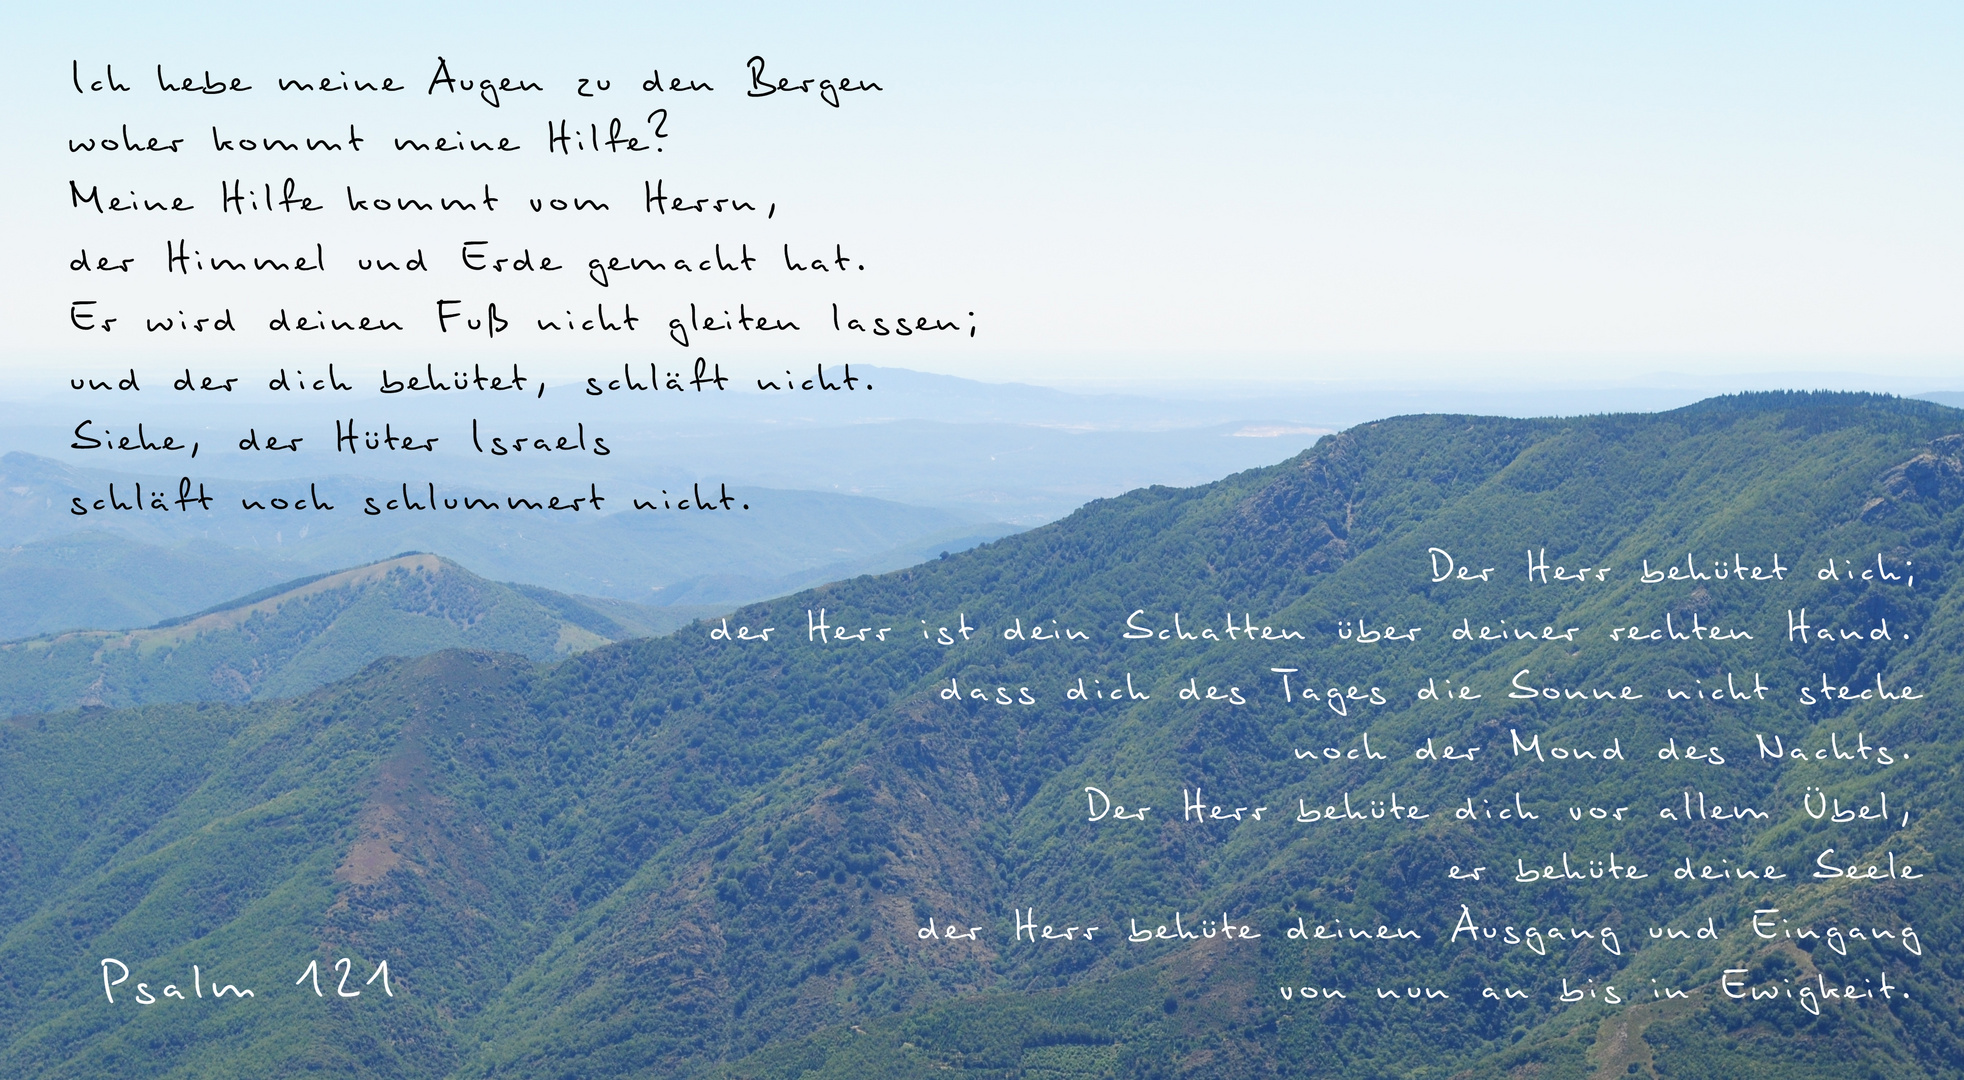 Ich hebe meine Augen zu den Bergen
woher kommt meine Hilfe?
Meine Hilfe kommt vom Herrn,
der Himmel und Erde gemacht hat.
Er wird deinen Fuß nicht gleiten lassen;
und der dich behütet, schläft nicht.
Siehe, der Hüter Israels
schläft noch schlummert nicht.
Der Herr behütet dich;
der Herr ist dein Schatten über deiner rechten Hand.
dass dich des Tages die Sonne nicht steche
noch der Mond des Nachts.
Der Herr behüte dich vor allem Übel,
er behüte deine Seele
der Herr behüte deinen Ausgang und Eingang
von nun an bis in Ewigkeit.
Psalm 121